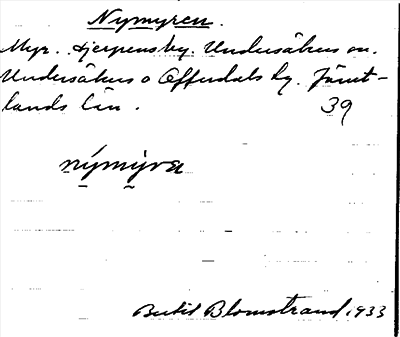 Nymyren.
Myr. Hjerpens by. Undersåkers sn.
Undersåkers o Offerdals tg. Jämt-
lands län. 39
nýmỳra
Bertil Blomstrand 1933